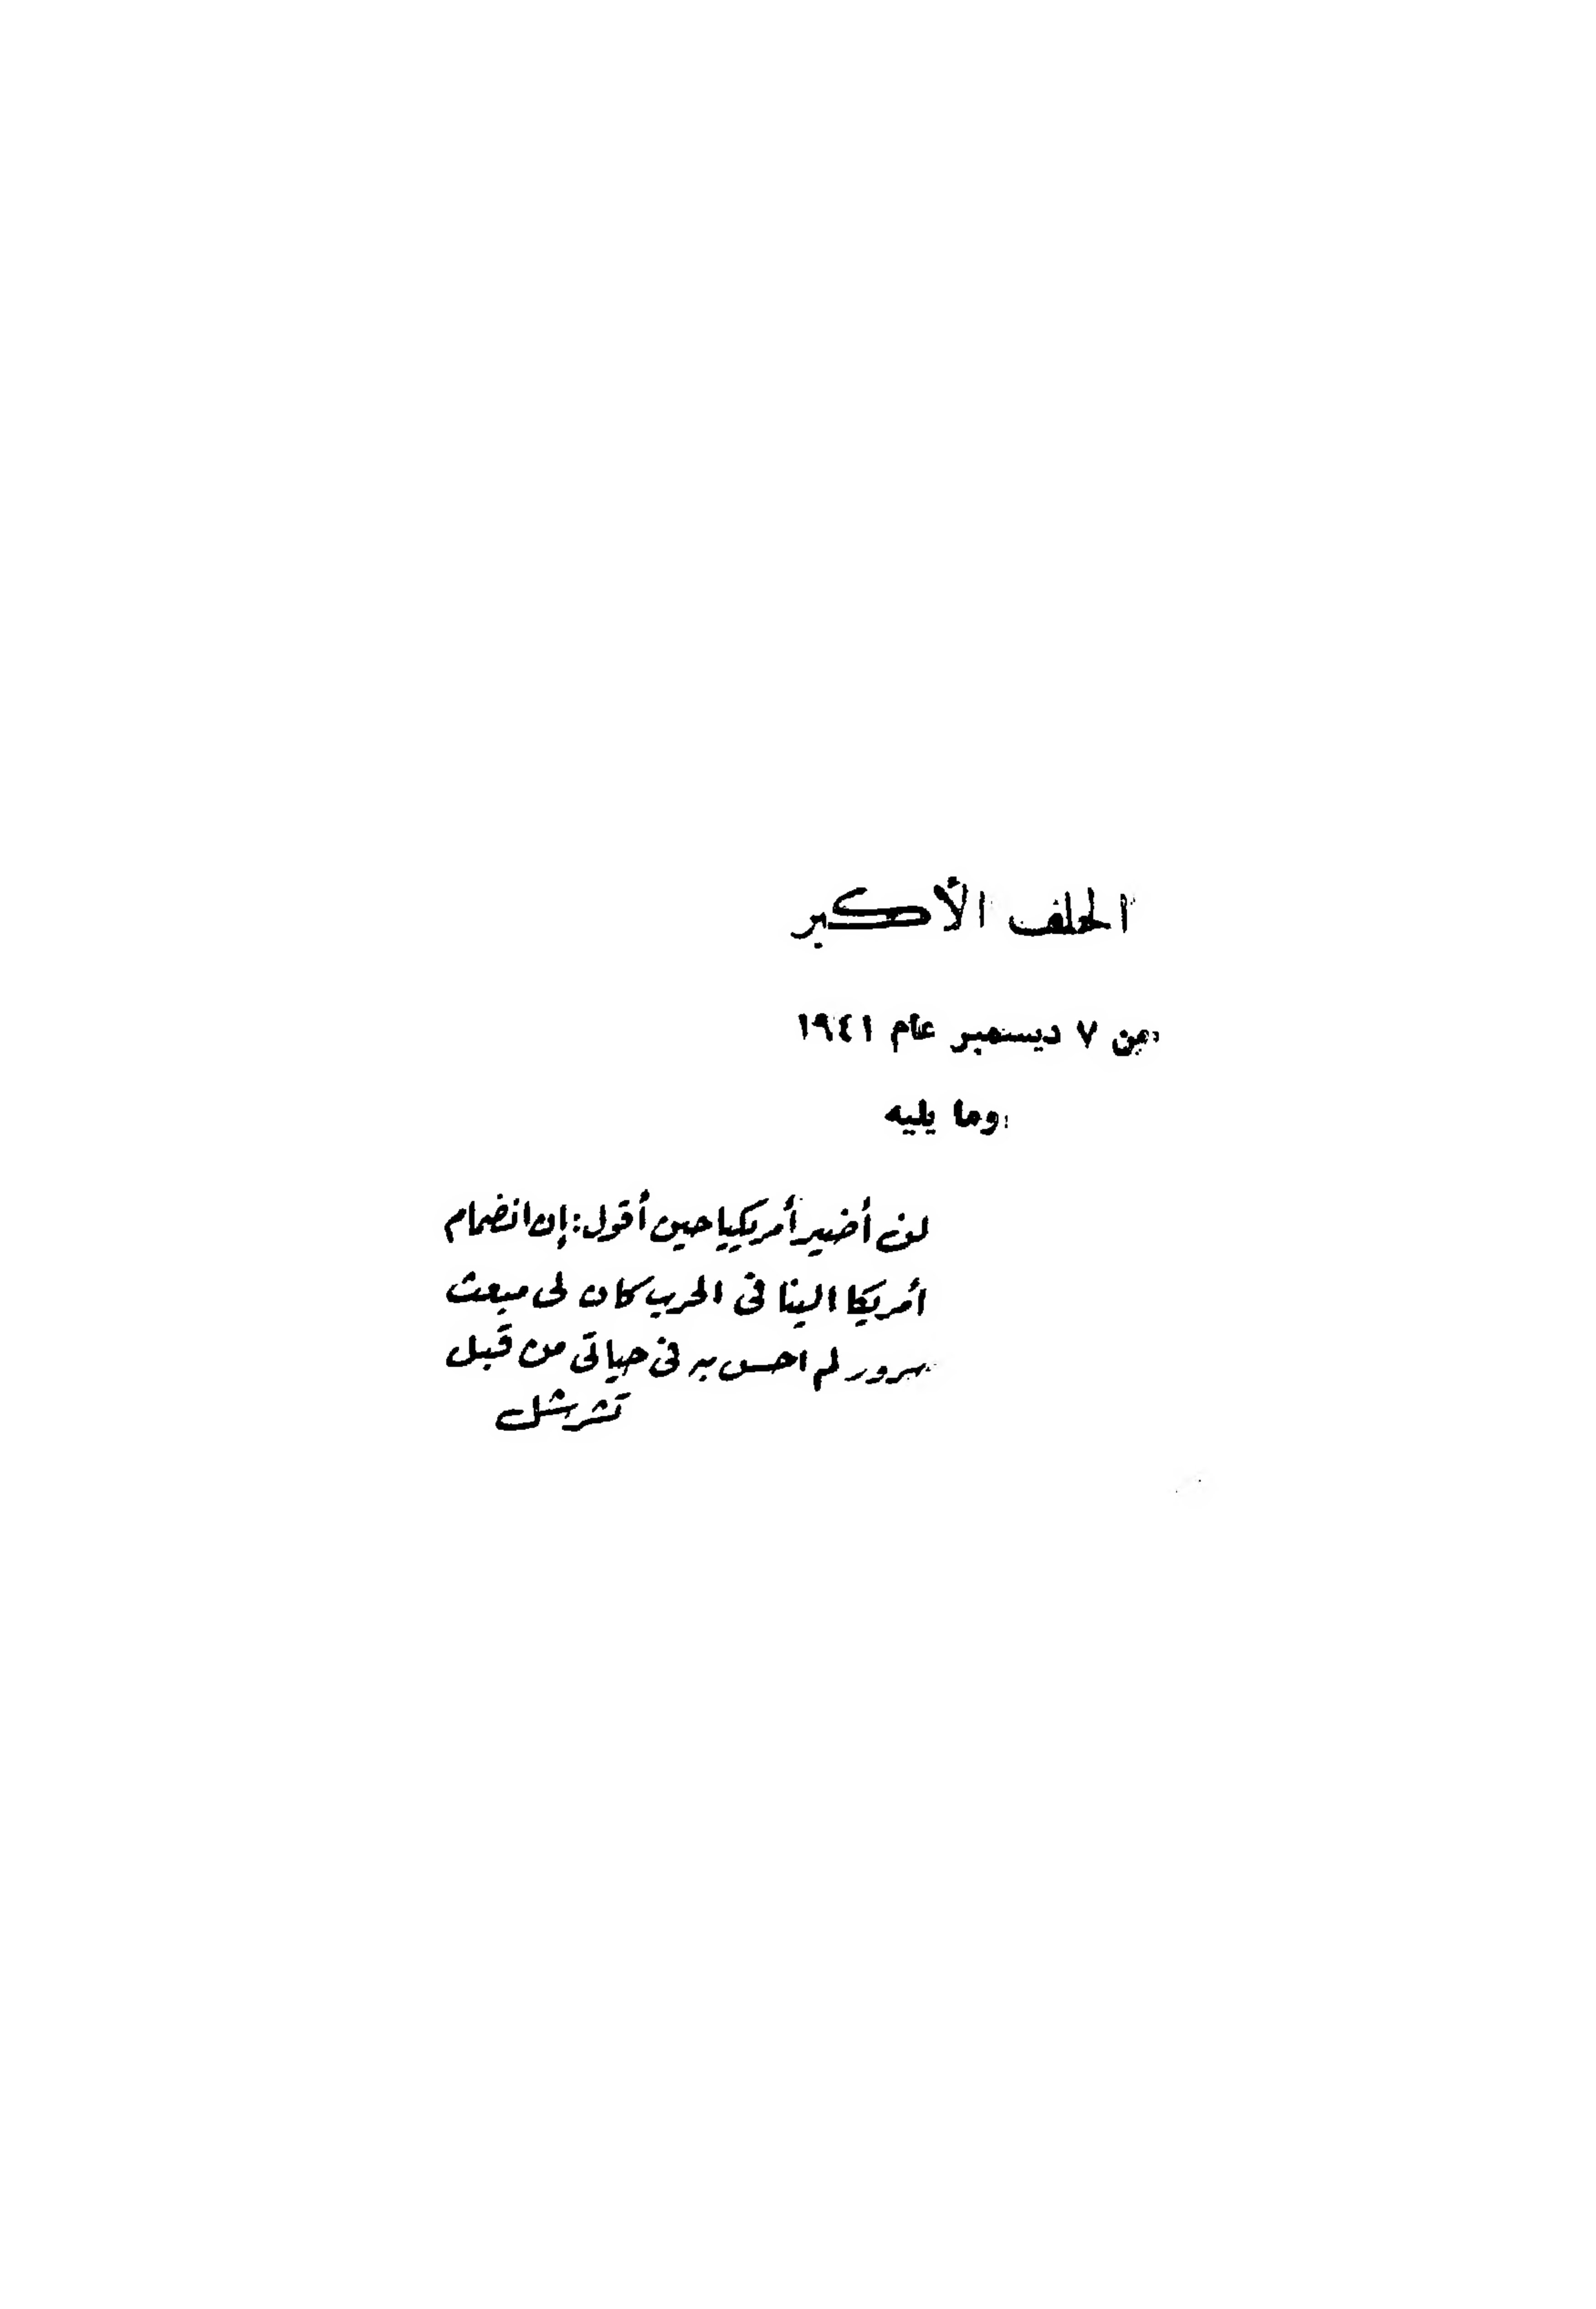 الحلف الأكبر
من ٧ ديسمبر عام ١٩٤١
وما يليه
لن أضير أمريكيا حين أقول: إن انضمام
أمريكا الينا فى الحرب كان لى مبعث
سرور لم احس به فى حياتى من قبل
تشرشل